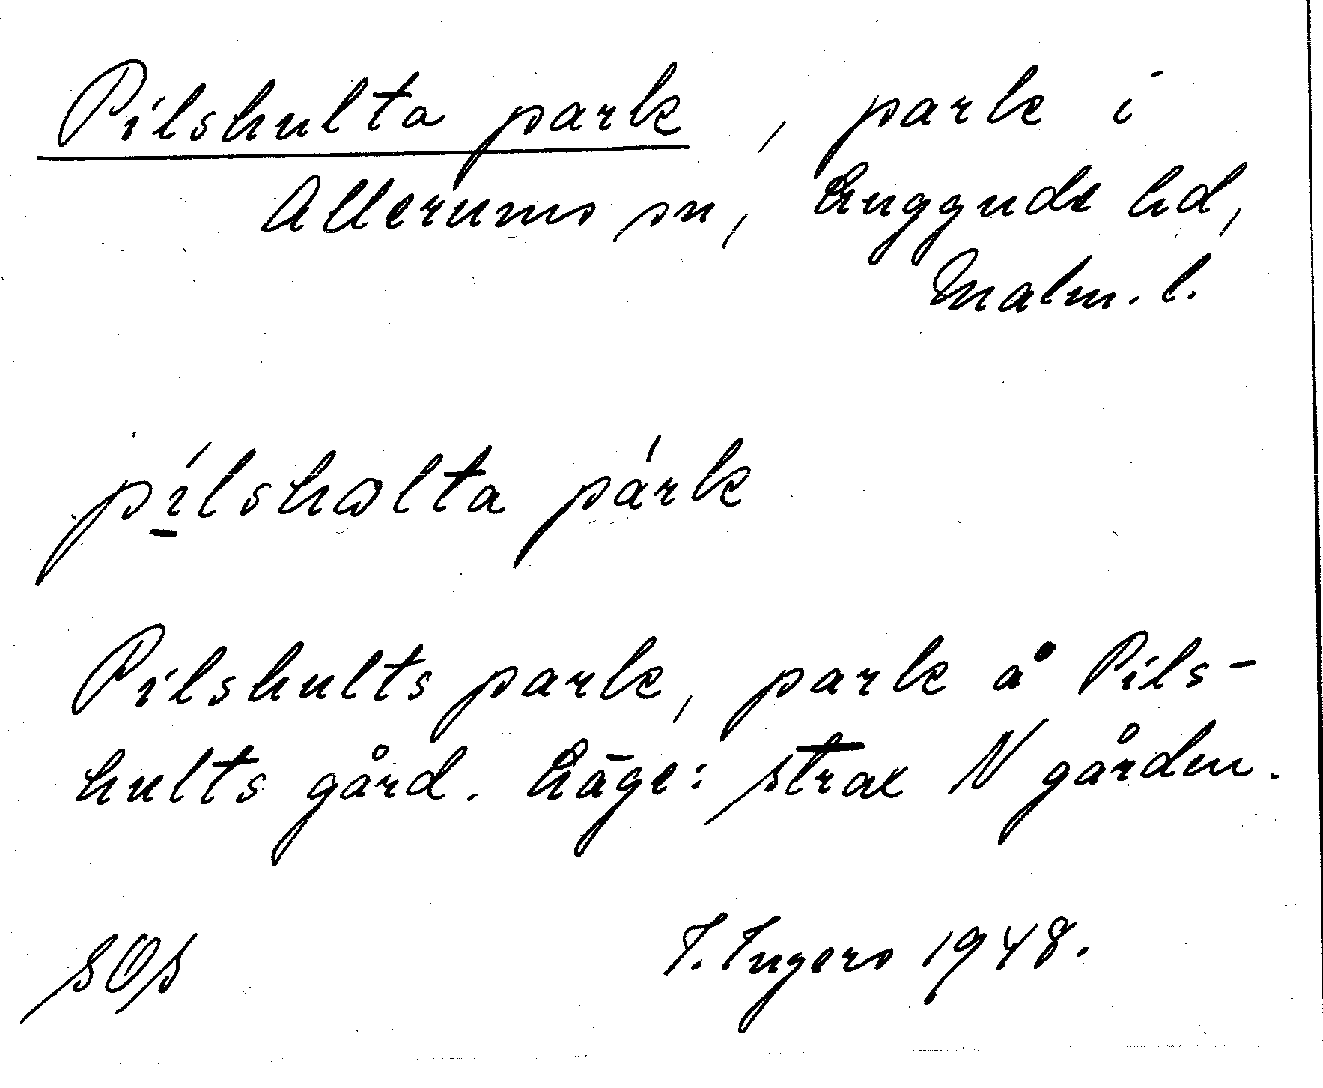 Pilshulta park, park i
Allerums sn, Luggude hd,
Malm. l.
pílshɷlta párk
Pilshults park, park å Pils-
hults gård. Läge: strax N gården.
SOS I. Ingers 1948.